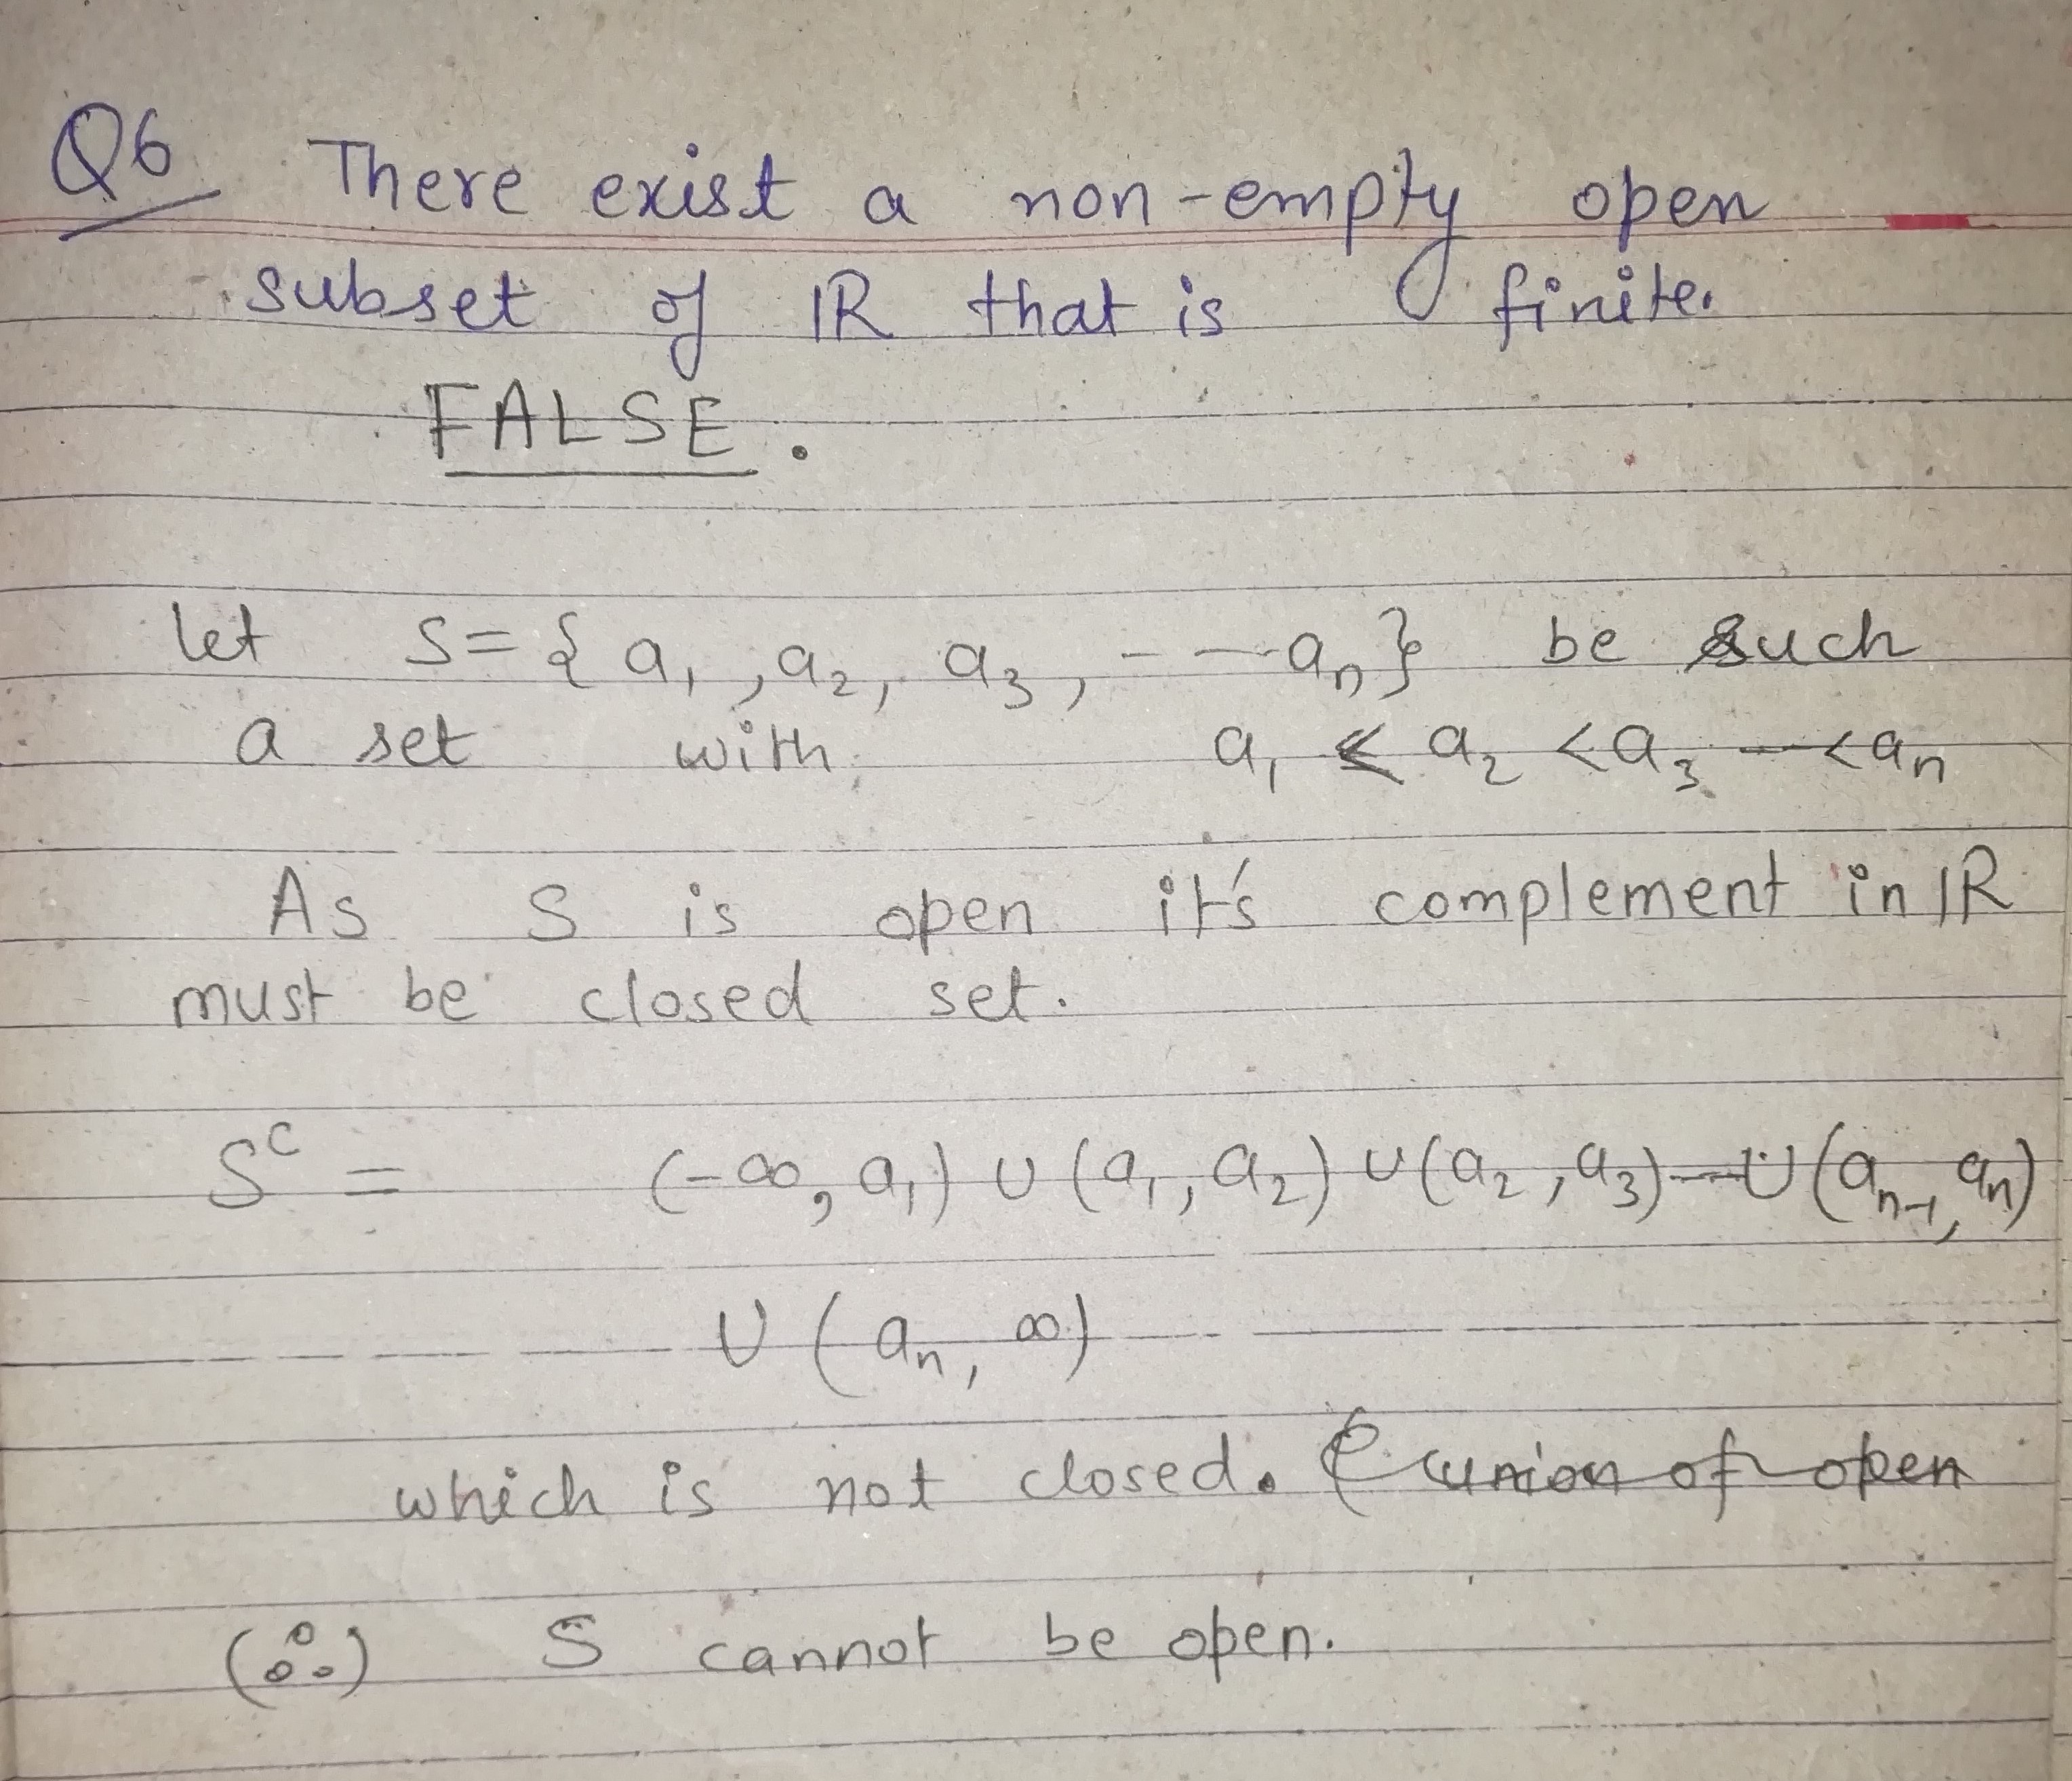 Q6 There exist a non-empty open
subset of IR that is finite.
FALSE.
let S = { a₁, a₂, a₃, ---aₙ} be such
a set with a₁ < a₂ < a₃ --< aₙ
As S is open it's complement in IR
must be closed set.
Sᶜ = (-∞, a₁) ∪ (a₁, a₂) ∪ (a₂, a₃)--∪(aₙ₋₁, aₙ)
∪ (aₙ, ∞)
which is not closed. union of open
(∴) S cannot be open.